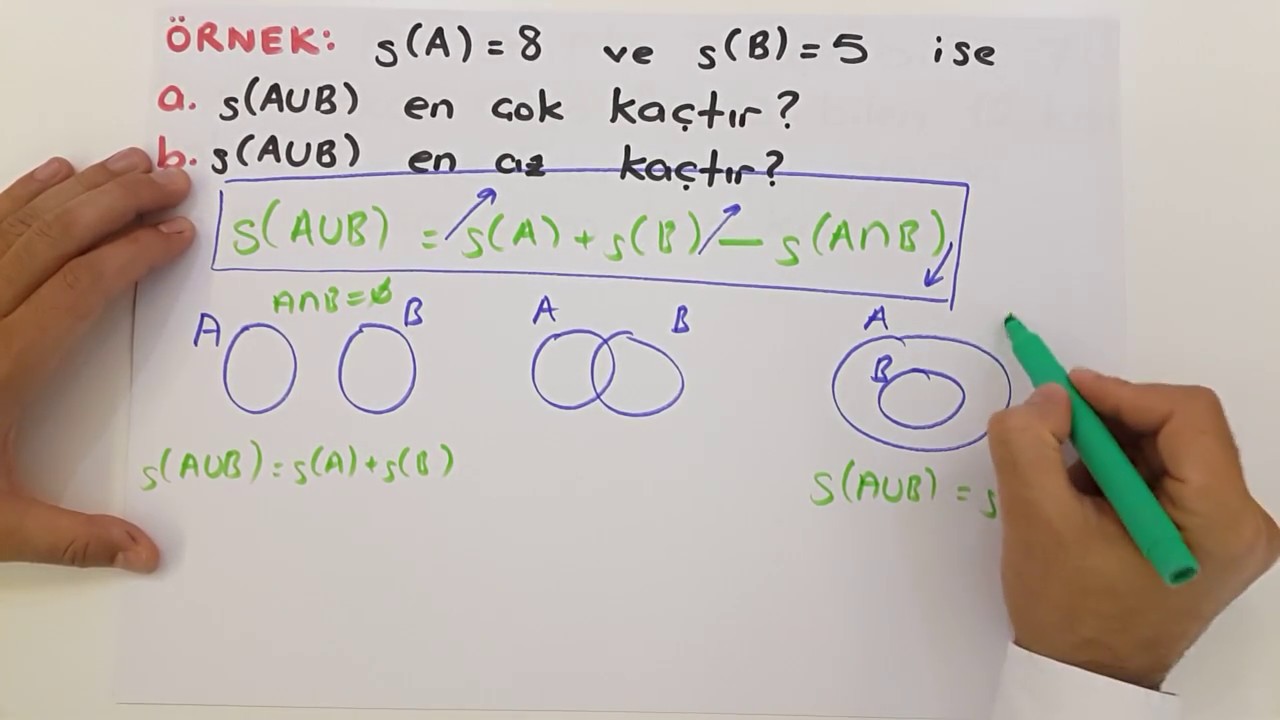 ÖRNEK: s(A) = 8 ve s(B) = 5 ise
a. s(AUB) en çok kaçtır?
b. s(AUB) en az kaçtır?
s(AUB) = s(A) + s(B) - s(A∩B)
A∩B = ∅
A B A B A B
s(AUB) = s(A) + s(B)
s(AUB) = s